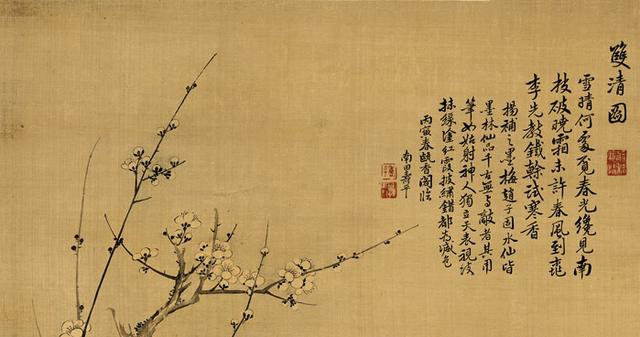 雙清圖
雪晴何處覓春光纔見南
枝破曉霜未許春風到桃
李先教鐵榦試寒香
楊補之墨梅趙子固水仙皆
墨林仙品千古無與敵者其用
筆如姑射神人獨立天表視彼
抹綠塗紅霞披繡錯都為減色
丙寅春甌香閣臨
南田壽平